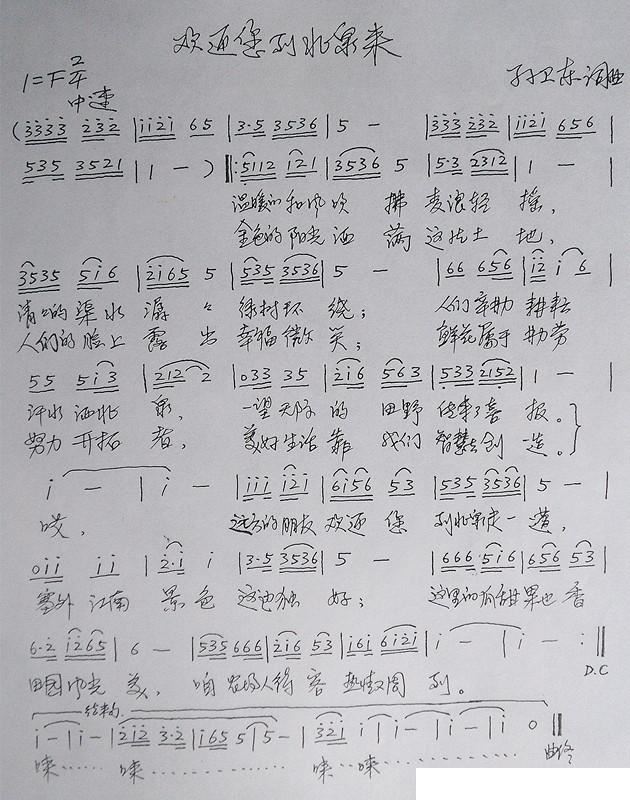 欢迎您到北泉来
1=F 2/4
中速
孙卫东词曲
(3333 232 | 1121 65 | 3·5 3536 | 5 — | 333 232 | 1121 656 |
535 3521 | 1 — ) ‖: 5112 121 | 3536 5 | 5·3 2312 | 1 — |
温暖的和风吹 拂 麦浪轻 摇,
金色的阳光洒 满 这片土 地,
3535 516 | 2165 5 | 535 3536 | 5 — | 66 656 | 12 1 6 |
清清的渠水 潺 々 绿树环 绕; 人们辛勤 耕耘
人们的脸上 露 出 幸福微 笑; 鲜花属于 勤劳
55 513 | 212 2 | 033 35 | 216 563 | 533 2152 | 1 — |
汗水洒北 泉 一望无际 的 田野 传来了喜 报。
努力开拓 者, 美好生活 靠 我们 智慧去创 造。
1 — | 1 — | 111 121 | 6156 53 | 535 3536 | 5 — |
哎, 远方的朋友 欢迎 您 到北泉走一 遭,
011 11 | 2·1 1 | 3·5 3536 | 5 — | 666 516 | 656 53 |
塞外 江南 景 色 这边独 好; 这里的瓜甜 果也 香
6·2 1265 | 6 — | 535 666 | 216 53 | 161 6121 | 1 — | 1 — :‖
田园风光 美, 咱 农场人待 客 热情周 到。
D.C
结束句
1 — | 1 — | 212 3·2 | 165 5 | 5 — | 321 1 | 1 — | 1 — | 1 0 ‖
来…… 来………… 来…来……
曲终